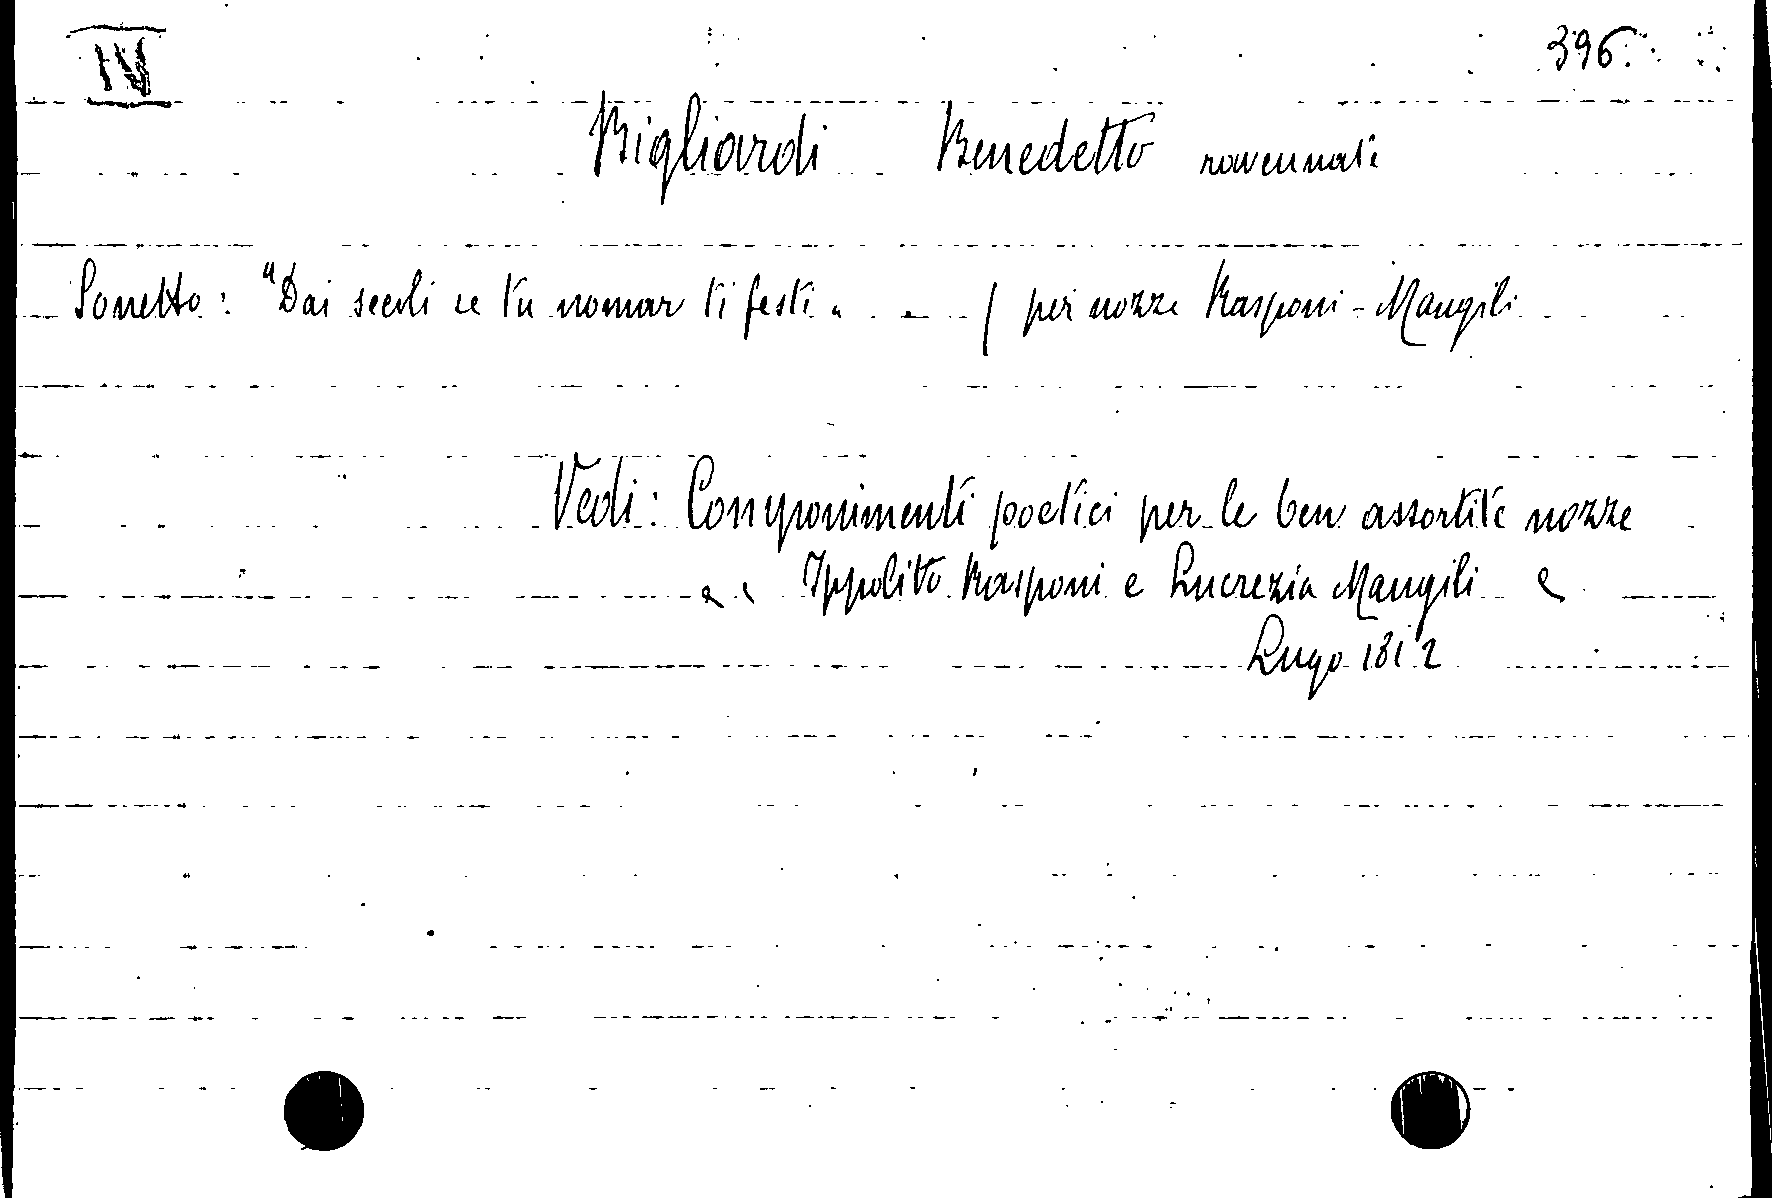 IV
396.
Bigliardi Benedetto ravennate
Sonetto: "Dai secoli se tu nomar ti festi . . . / per nozze Rasponi - Mangili
Vedi: Componimenti poetici per le ben assortite nozze
Ippolito Rasponi e Lucrezia Mangili
Lugo 1812